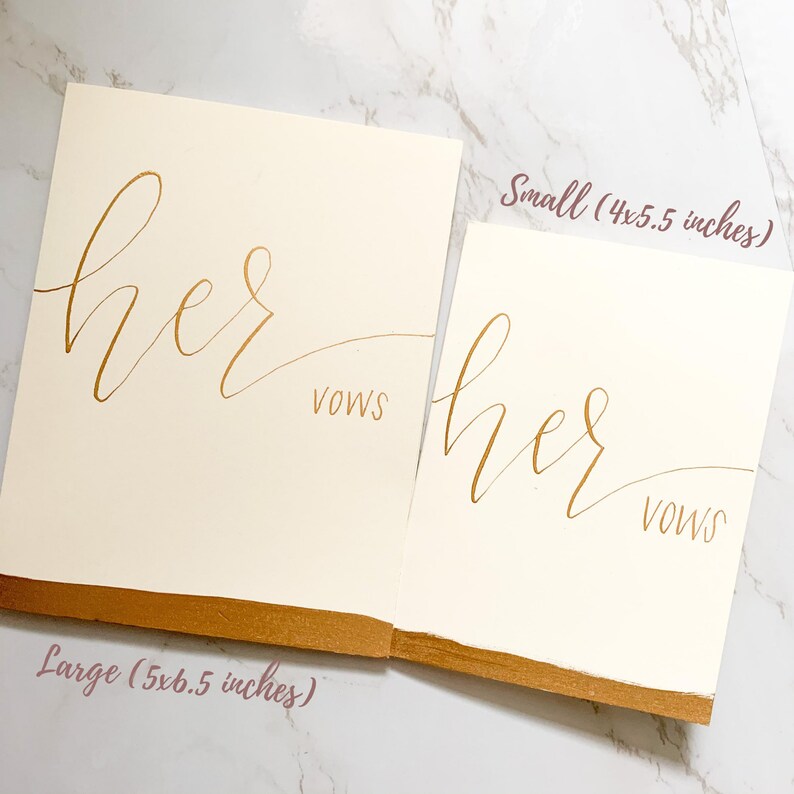 her
vows
Small (4x5.5 inches)
her
vows
Large (5x6.5 inches)